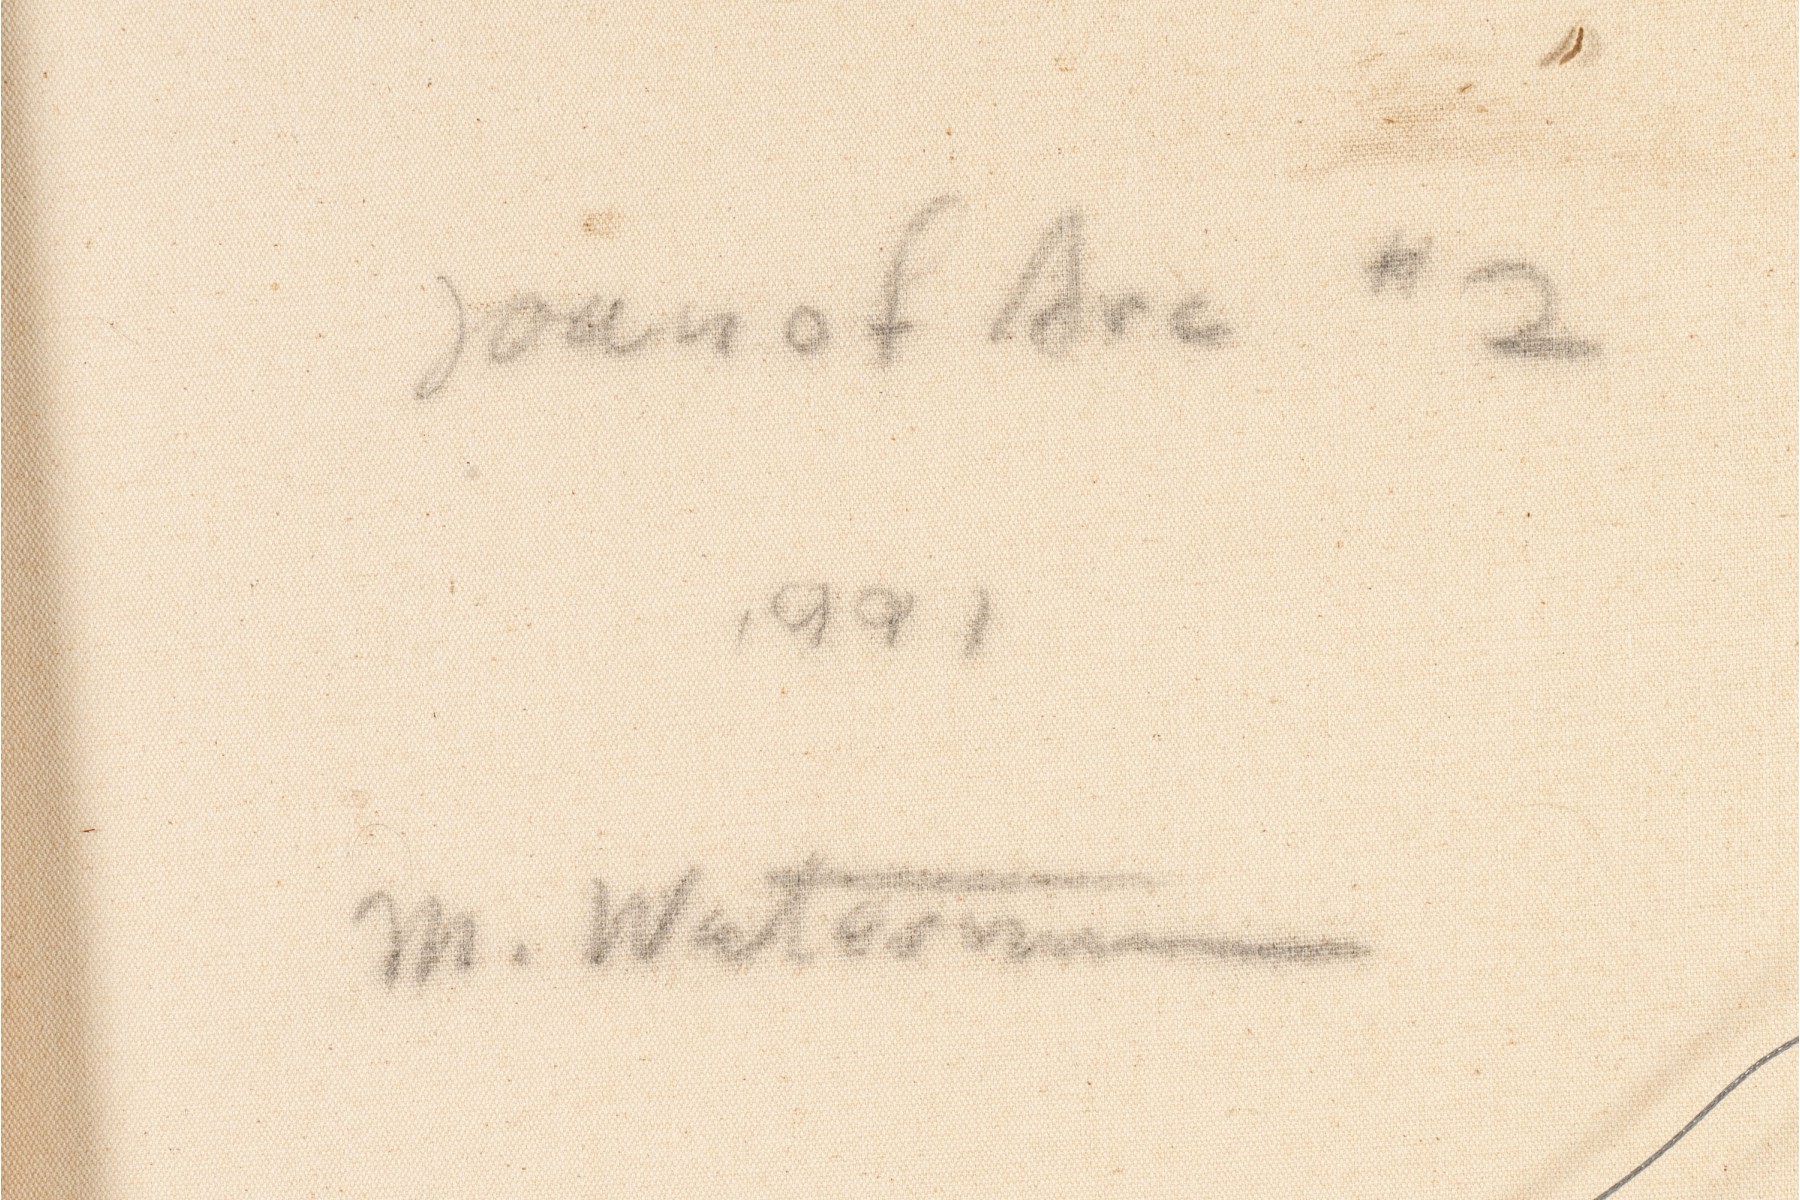 Joan of Arc #2
1991
M. Waterm